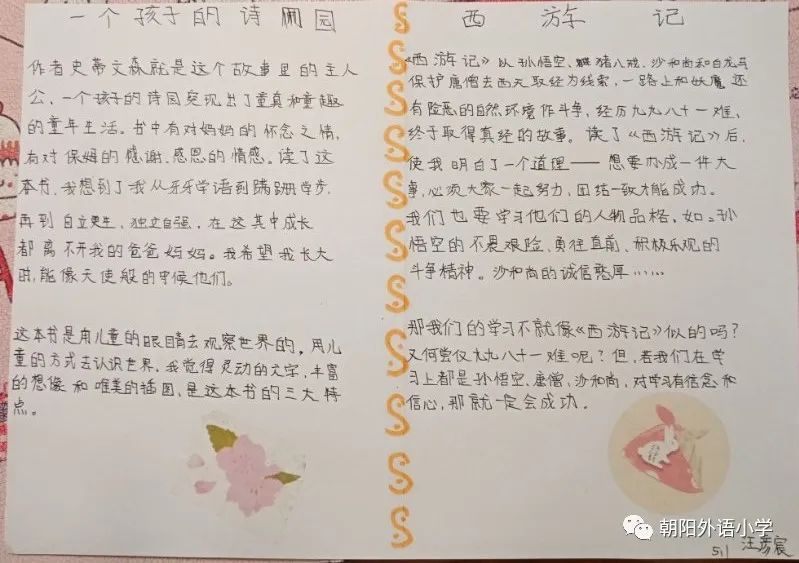 一个孩子的诗园
作者史蒂文森就是这个故事里的主人
公，一个孩子的诗园突现出了童真和童趣
的童年生活。书中有对妈妈的怀念之情，
有对保姆的感谢、感恩的情感。读了这
本书，我想到了我从牙牙学语到蹒跚学步，
再到自立更生、独立自强，在这其中成长
都离不开我的爸爸妈妈。我希望我长大
时，能像天使般的守候他们。
这本书是用儿童的眼睛去观察世界的，用儿
童的方式去认识世界。我觉得灵动的文字，丰富
的想像和唯美的插图，是这本书的三大特
点。
西游记
《西游记》以孙悟空、猪八戒、沙和尚和白龙马
保护唐僧去西天取经为线索，一路上和妖魔还
有险恶的自然环境作斗争，经历九九八十一难，
终于取得真经的故事。读了《西游记》后，
使我明白了一个道理——想要办成一件大
事，必须大家一起努力，团结一致才能成功。
我们也要学习他们的人物品格，如：孙
悟空的不畏艰险、勇往直前、积极乐观的
斗争精神。沙和尚的诚信憨厚……
那我们的学习不就像《西游记》似的吗？
又何尝仅九九八十一难呢？但，若我们在学
习上都是孙悟空、唐僧，沙和尚，对学习有信念和
信心，那就一定会成功。
朝阳外语小学
511 汪彦宸